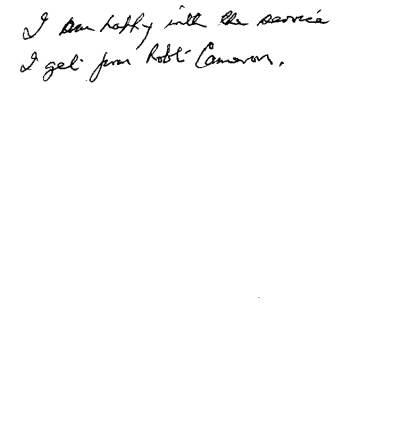 I am happy with the service
I get from Robt Cameron.